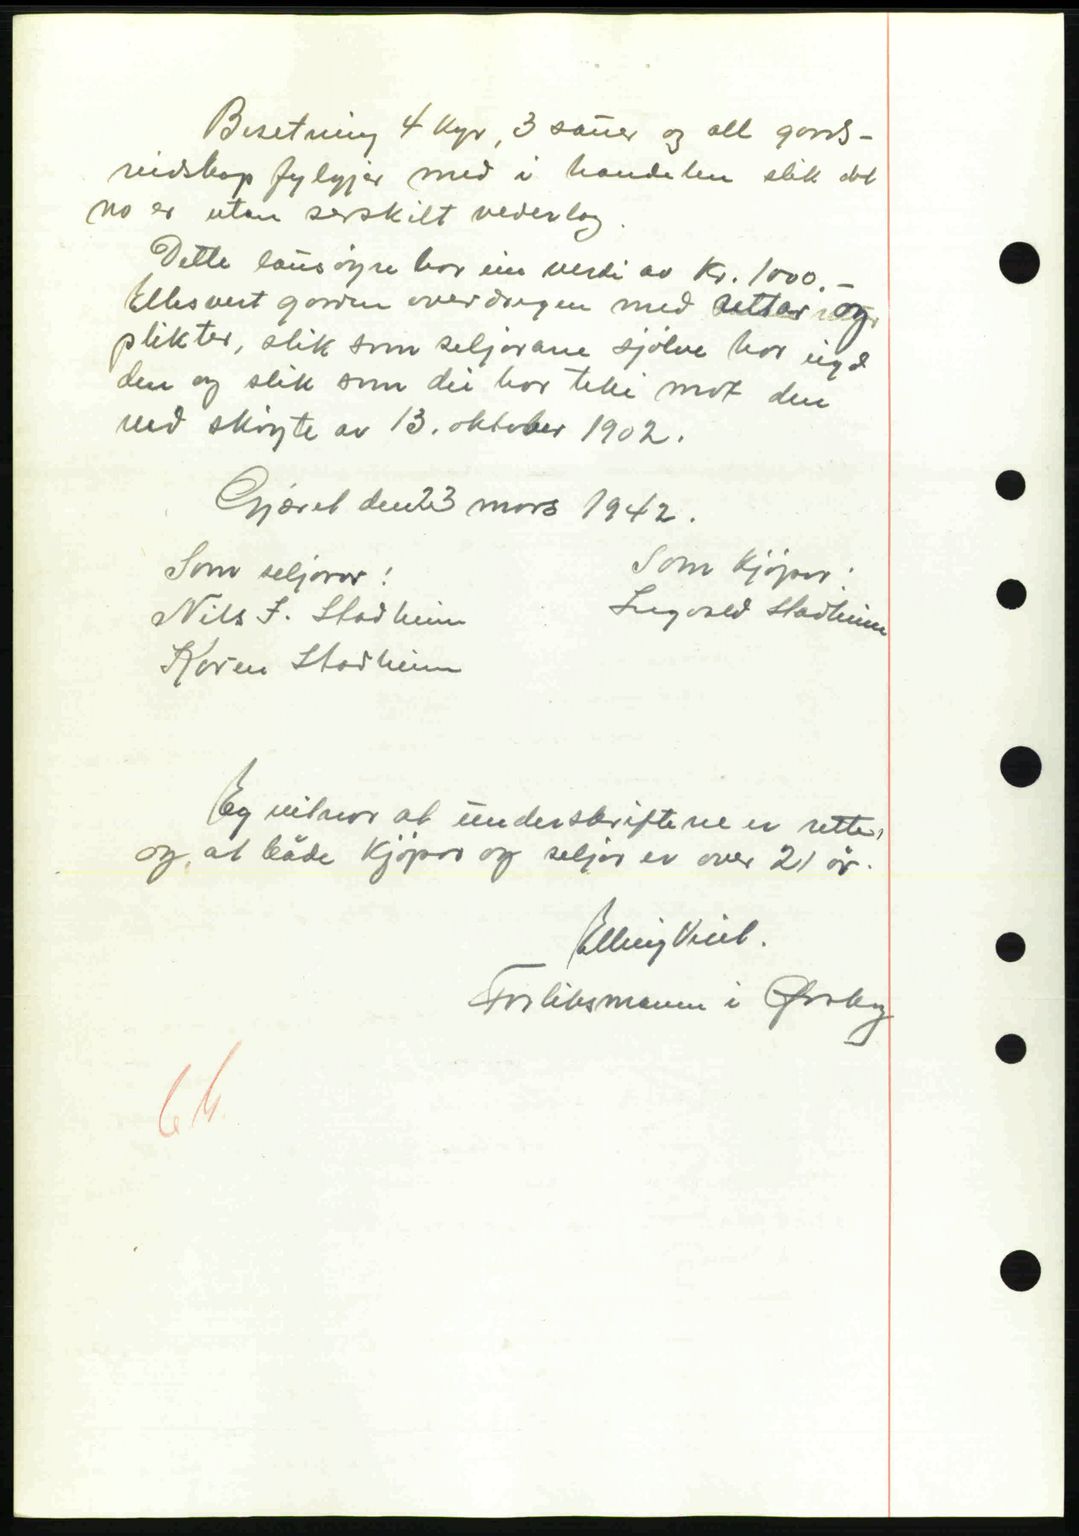 Besetning 4 kyr, 3 sauer og all gards-
reidskap fylgjer med i handelen slik det
no er utan serskilt vederlag.
Dette lausøyre har ein verdi av Kr. 1000.-
Ellesvert garden overdregen med rettar og
plikter, slik som seljarane sjølve har eigd
den og slik som dei har teke mot den
ved skøyte av 13. oktober 1902.
den 23 mars 1942.
Som seljarar! Som kjøpar!
Nils J. Stadheim Ingvald Stadheim
Karen Stadheim
Eg vitnar at underskriftene er rette,
og at både kjøpar og seljar er over 21 år.
Elling
Forliksmann i Ørsta